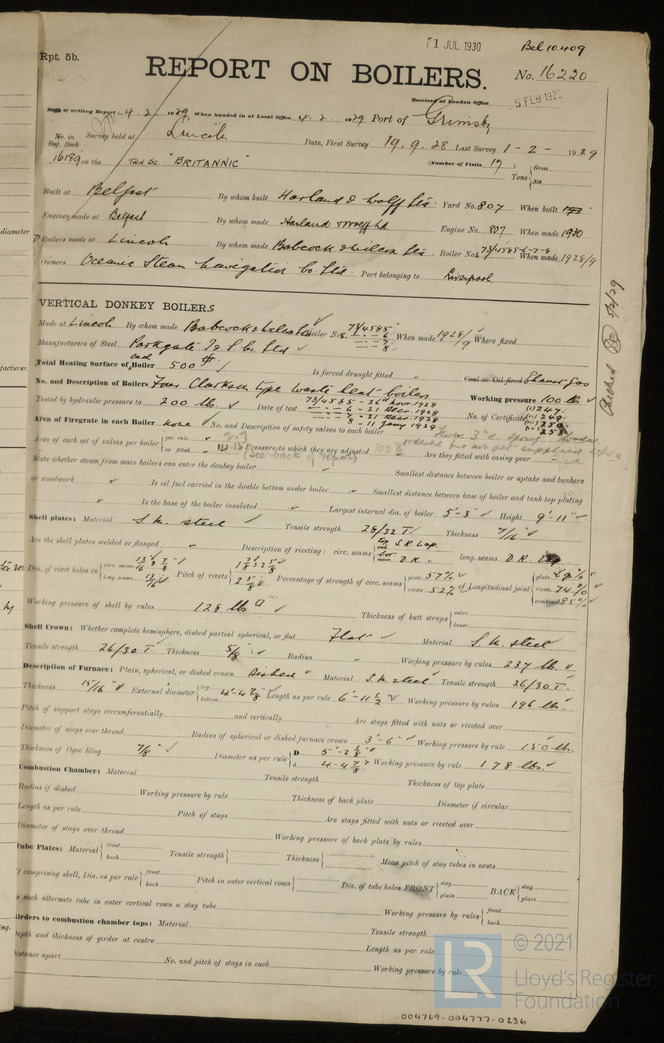 Rpt. 5b.
11 JUL 1930
Bel 10409
REPORT ON BOILERS.
No. 16220
Received at London Office
5 FEB 1929
Date of writing Report 4. 2. 1929 When handed in at Local Office 4. 2. 1929 Port of Grimsby
No. in Reg. Book Survey held at Lincoln Date, First Survey 19. 9. 28 Last Survey 1 - 2 - 1929
(Number of Visits 17)
16189 on the "BRITANNIC" Tons { Gross Net
Built at Belfast By whom built Harland & Wolff Ltd. Yard No. 807 When built
Engines made at Belfast By whom made Harland & Wolff Ltd Engine No. 807 When made 1930
Boilers made at Lincoln By whom made Babcock & Wilcox Ltd Boiler Nos. 73/4585-6-7-8 When made 1928/9
Owners Oceanic Steam Navigation Co. Ltd Port belonging to Liverpool
VERTICAL DONKEY BOILERS
Made at Lincoln By whom made Babcock & Wilcox Ltd Boiler Nos. 73/4585 6 7 8 When made 1928/9 Where fixed
Manufacturers of Steel Parkgate I & S Co. Ltd
Total Heating Surface of each Boiler 500 Is forced draught fitted Coal or Oil fired Exhaust Gas
No. and Description of Boilers Four Clarkson type waste heat boilers Working pressure 100 lb.
Tested by hydraulic pressure to 200 lb. Date of test 73/4585 - 26th Nov. 1928 - 6 - 21 Dec. 1928 - 7 - 21 Dec. 1928 - 8 - 11 Jany 1929 No. of Certificate 247 249
Area of Firegrate in each Boiler None No. and Description of safety valves to each boiler
Area of each set of valves per boiler { per rule as fitted Pressure to which they are adjusted 100 Are they fitted with easing gear
(See back of report)
State whether steam from main boilers can enter the donkey boiler Smallest distance between boiler or uptake and bunkers
or woodwork Is oil fuel carried in the double bottom under boiler Smallest distance between base of boiler and tank top plating
Is the base of the boiler insulated Largest internal dia. of boiler 5'-3" Height 9'-11"
Shell plates: Material S. M. steel Tensile strength 28/32 T. Thickness 7/16"
Are the shell plates welded or flanged Description of riveting: circ. seams { S.R. Lap. D.R. long. seams D.R. Lap
Dia. of rivet holes in { circ. seams long. seams 13/16 Pitch of rivets { 1 7/8 2 5/8 Percentage of strength of circ. seams { plate 57% rivets 52% of Longitudinal joint { plate rivets 74 % combined 85 %
Working pressure of shell by rules 128 lbs Thickness of butt straps { outer inner
Shell Crown: Whether complete hemisphere, dished partial spherical, or flat Flat Material S. M. steel
Tensile strength 26/30 T. Thickness 5/8" Radius Working pressure by rules 237 lb.
Description of Furnace: Plain, spherical, or dished crown Dished Material S. M. steel Tensile strength 26/30 T.
Thickness 15/16" External diameter { top bottom 4'-4 7/8 Length as per rule 6'-11 1/2" Working pressure by rules 196 lb.
Pitch of support stays circumferentially and vertically Are stays fitted with nuts or riveted over
Diameter of stays over thread Radius of spherical or dished furnace crown 3'-6" Working pressure by rule 150 lb.
Thickness of Ogee Ring 7/8" Diameter as per rule { D 5'-2 d 4-4 7/8 Working pressure by rule 178 lbs.
Combustion Chamber: Material Tensile strength Thickness of top plate
Radius if dished Working pressure by rule Thickness of back plate Diameter if circular
Length as per rule Pitch of stays Are stays fitted with nuts or riveted over
Diameter of stays over thread Working pressure of back plate by rules
Tube Plates: Material { front back Tensile strength { Thickness { Mean pitch of stay tubes in nests
If comprising shell, Dia. as per rule { front back Pitch in outer vertical rows { Dia. of tube holes FRONT { stay plain BACK { stay plain
s each alternate tube in outer vertical rows a stay tube Working pressure by rules { front back
Girders to combustion chamber tops: Material Tensile strength
Depth and thickness of girder at centre Length as per rule
Distance apart No. and pitch of stays in each Working pressure by rule
Checked 5/2/29
LR
© 2021
Lloyd's Register
Foundation
004769-004777-0236